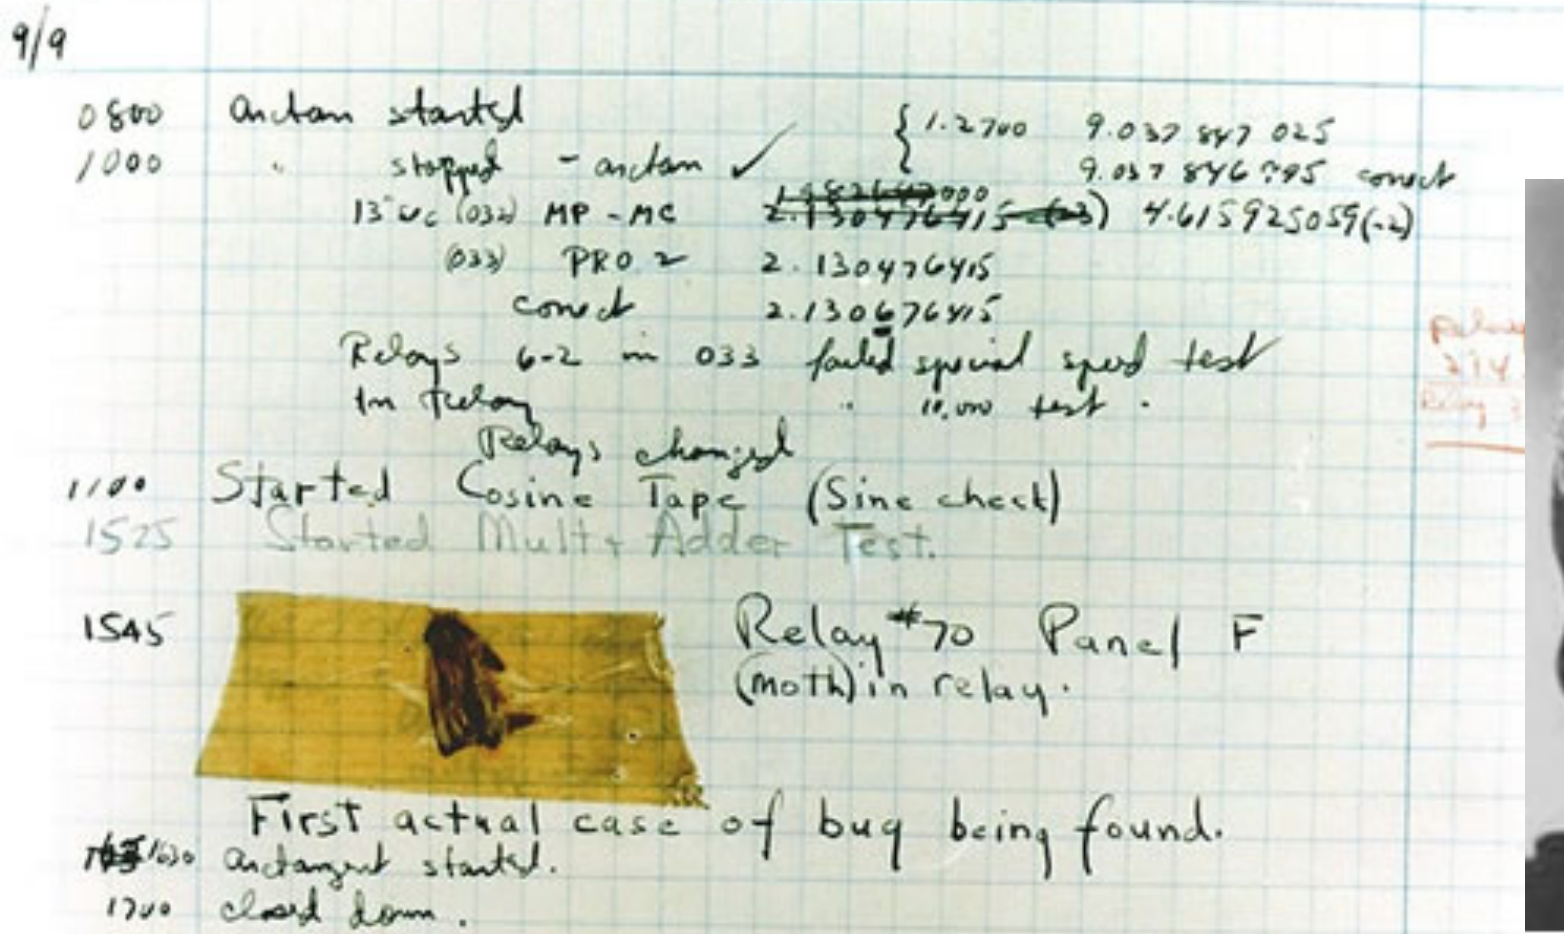 9/9
0800 arctan started { 1.2700 9.037 847 025
1000 " stopped - arctan ✓ 9.037 846 795 correct
13"uc (032) MP - MC 2.130476415 (-3) 4.615925059(-2)
(033) PRO 2 2.130476415
correct 2.130676415
Relays 6-2 in 033 failed special speed test
In Relay " 10,000 test .
Relays changed
1100 Started Cosine Tape (Sine check)
1525 Started Mult + Adder Test.
1545 Relay #70 Panel F
(moth) in relay.
First actual case of bug being found.
1630 arctangent started.
1700 closed down.
Relay
Relay